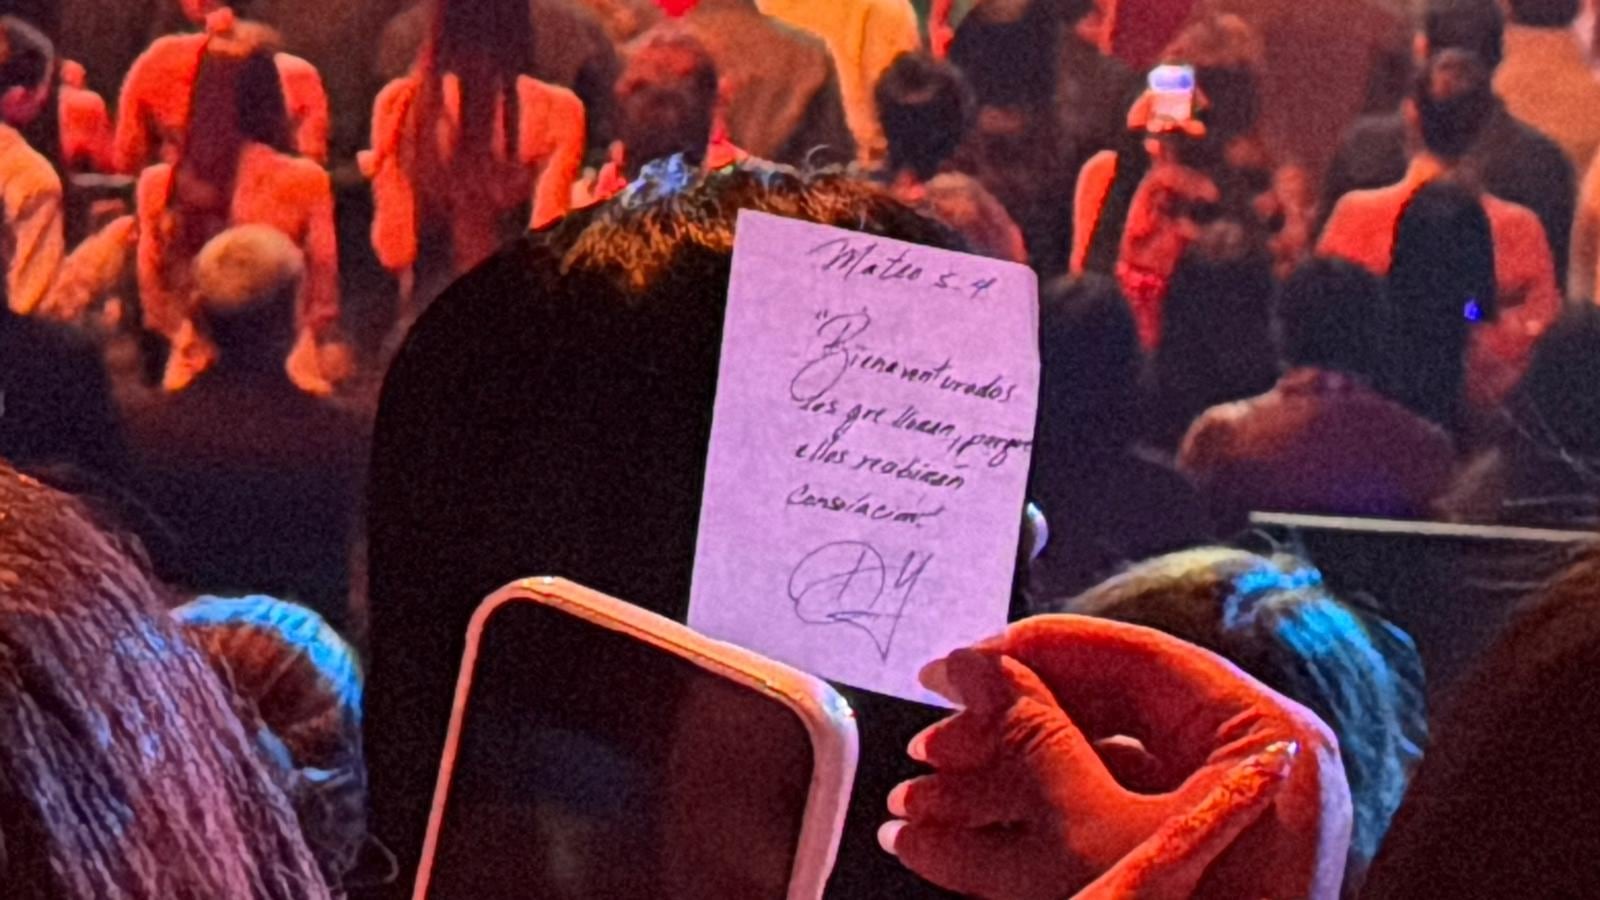 Mateo 5.4
"Bienaventurados
los que lloran, porque
ellos recibirán
consolación"
DY